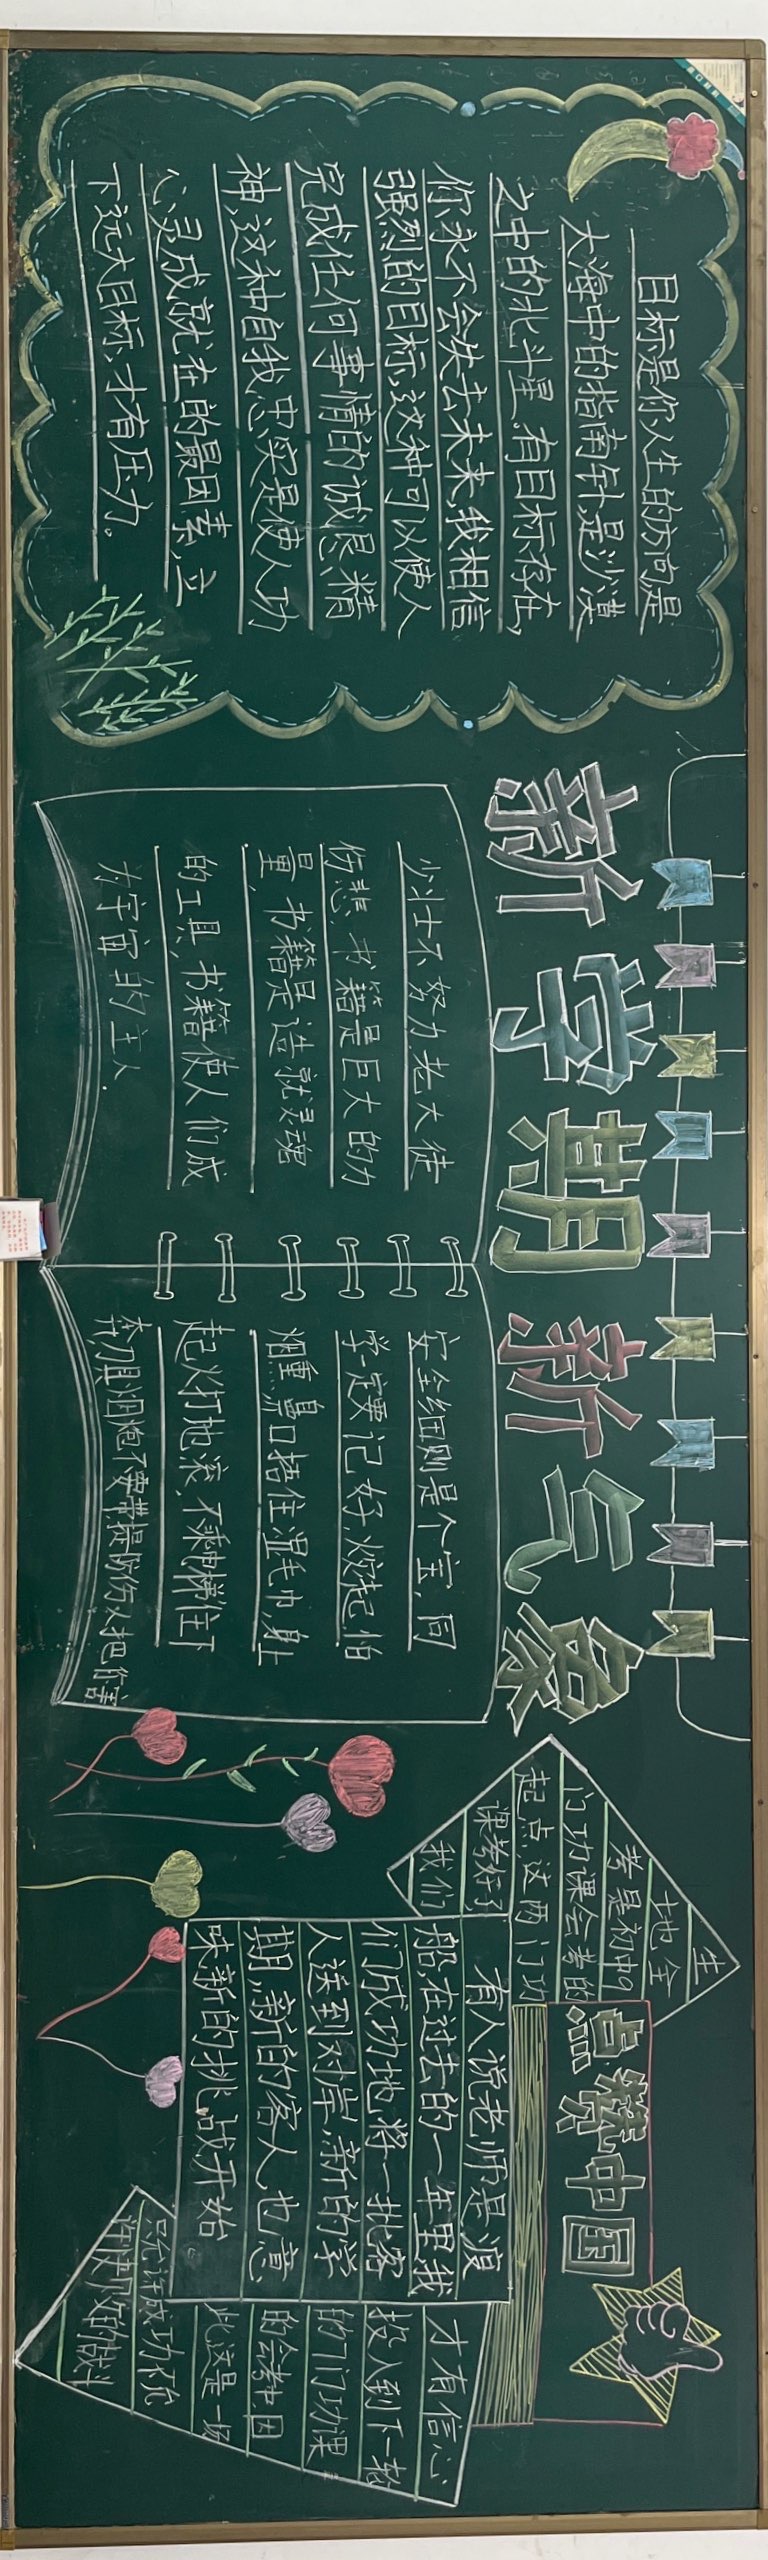 目标是你人生的方向是
大海中的指南针,是沙漠
之中的北斗星,有目标存在,
你永不会失去未来,我相信
强烈的目标,这种可以使人
完成任何事情的诚恳精
神,这种自我忠实是使人功
心灵成就在的最因素,立
下远大目标,才有压力。
新学期新气象
少壮不努力,老大徒
伤悲,书籍是巨大的力
量,书籍是造就灵魂
的工具,书籍使人们成
为宇宙的主人.
安全细则是个宝,同
学一定要记好,燚起,怕
烟熏,鼻口捂住湿毛巾,身上
起火打地滚,不乘电梯往下
奔,刀具烟炮不要带,提防伤人把你害
点赞中国
生
地会
考是初中9
门功课会考的
起点,这两门功
课考好了
我们
有人说老师是渡
船,在过去的一年里我
们成功地将一批客
人送到对岸,新的学
期,新的客人也意
味新的挑战开始
才有信心
投入到下一轮
的7门功课
的会考中,因
此这是一场
只允许成功不允
许失败的战斗